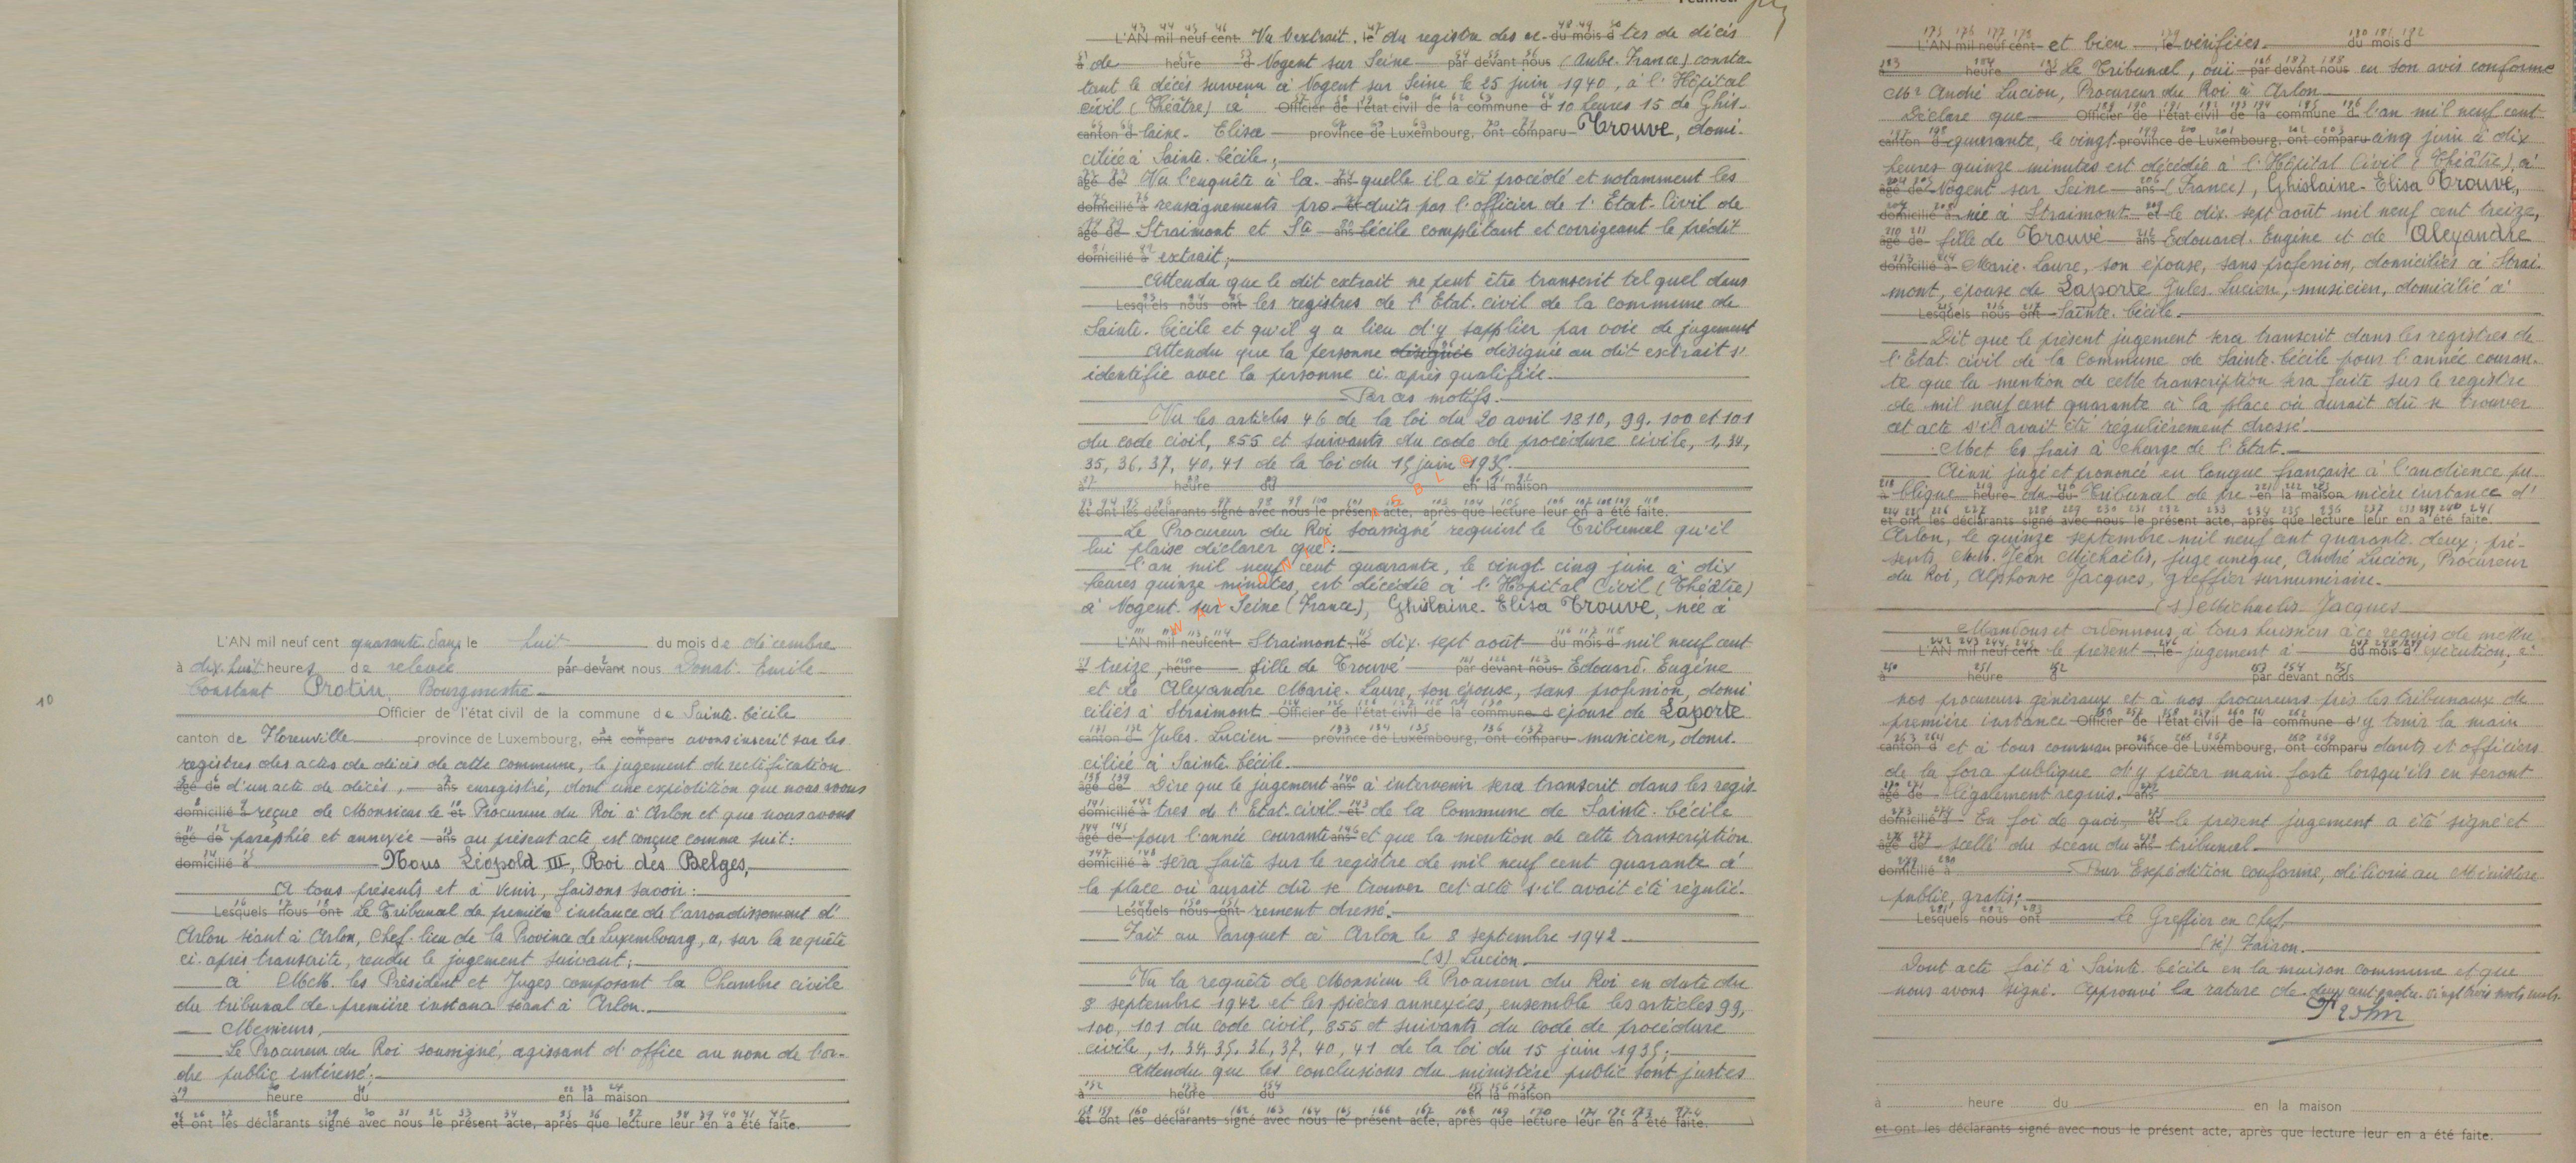 10
L'AN mil neuf cent quarante deux le huit du mois de décembre
à dix-huit heures de relevée par devant nous Donat-Emile
Constant Protin, Bourgmestre
Officier de l'état civil de la commune de Sainte-Cécile
canton de Florenville province de Luxembourg, ont comparu avons inscrit sur les
registres des actes de décès de cette commune, le jugement de rectification
âgé de d'un acte de décès, ans enregistré, dont une expédition que nous avons
domicilié à reçue de Monsieur le et Procureur du Roi à Arlon et que nous avons
âgé de paraphée et annexée ans au présent acte, est conçue comme suit:
domicilié à Nous Léopold III, Roi des Belges,
A tous présents et à venir, faisons savoir:
Lesquels nous ont Le Tribunal de première instance de l'arrondissement d'
Arlon séant à Arlon, Chef-lieu de la Province de Luxembourg, a, sur la requête
ci-après transcrite, rendu le jugement suivant:
A MM. les Président et Juges composant la Chambre civile
du tribunal de première instance séant à Arlon.
Messieurs,
Le Procureur du Roi soussigné, agissant d'office au nom de l'or-
dre public intéressé;
à heure du en la maison
et ont les déclarants signé avec nous le présent acte, après que lecture leur en a été faite.
Feuillet.
L'AN mil neuf cent Vu l'extrait le du registre des ac- du mois d tes de décès
à de heure d Nogent sur Seine par devant nous (Aube-France) consta-
tant le décès survenu à Nogent sur Seine le 25 juin 1940, à l'Hôpital
civil (Théâtre) à Officier de l'état civil de la commune d 10 heures 15 de Ghis-
canton d laine-Elisa province de Luxembourg, ont comparu Trouve, domi-
ciliée à Sainte-Cécile;
âgé de Vu l'enquête à la- ans quelle il a été procédé et notamment les
domicilié à renseignements pro- et duits par l'officier de l'Etat-Civil de
âgé de Straimont et Ste ans Cécile complétant et corrigeant le prédit
domicilié à extrait;
Attendu que le dit extrait ne peut être transcrit tel quel dans
Lesquels nous ont les registres de l'Etat-civil de la commune de
Sainte-Cécile et qu'il y a lieu d'y suppléer par voie de jugement
Attendu que la personne désignée désignée au dit extrait s'
identifie avec la personne ci-après qualifiée.
Par ces motifs.
Vu les articles 46 de la loi du 20 avril 1810, 99, 100 et 101
du code civil, 855 et suivants du code de procédure civile, 1, 34,
35, 36, 37, 40, 41 de la loi du 15 juin 1935.
à heure du en la maison
et ont les déclarants signé avec nous le présent acte, après que lecture leur en a été faite.
Le Procureur du Roi soussigné requiert le Tribunal qu'il
lui plaise déclarer que:
l'an mil neuf cent quarante, le vingt-cinq juin à dix
heures quinze minutes, est décédée à l'Hôpital Civil (Théâtre)
à Nogent-sur Seine (France), Ghislaine-Elisa Trouve, née à
L'AN mil neuf cent Straimont, le dix-sept août du mois d mil neuf cent
à treize, heure fille de Trouvé par devant nous Edouard-Eugène
et de Alexandre Marie-Laure, son épouse, sans profession, domi
ciliés à Straimont Officier de l'état civil de la commune d épouse de Laporte
canton d Jules-Lucien province de Luxembourg, ont comparu musicien, domi-
ciliée à Sainte-Cécile.
âgé de Dire que le jugement ans à intervenir sera transcrit dans les regis-
domicilié à tres de l'Etat-civil et de la Commune de Sainte-Cécile
âgé de pour l'année courante ans et que la mention de cette transcription
domicilié à sera faite sur le registre de mil neuf cent quarante à
la place où aurait dû se trouver cet acte s'il avait été réguliè-
Lesquels nous ont rement dressé.
Fait au Parquet à Arlon le 8 septembre 1942
(s) Lucion.
Vu la requête de Monsieur le Procureur du Roi en date du
8 septembre 1942 et les pièces annexées, ensemble les articles 99,
100, 101 du code civil, 855 et suivants du code de procédure
civile, 1, 34, 35, 36, 37, 40, 41 de la loi du 15 juin 1935;
Attendu que les conclusions du ministère public sont justes
à heure du en la maison
et ont les déclarants signé avec nous le présent acte, après que lecture leur en a été faite.
L'AN mil neuf cent et bien le vérifiées. du mois d
à heure d Le Tribunal, ouï par devant nous en son avis conforme
Mr André Lucion, Procureur du Roi à Arlon
Déclare que Officier de l'état civil de la commune d l'an mil neuf cent
canton d quarante, le vingt- province de Luxembourg, ont comparu cinq juin à dix
heures quinze minutes est décédée à l'Hôpital Civil (Théâtre), à
âgé de Nogent sur Seine ans (France), Ghislaine-Elisa Trouve,
domicilié à née à Straimont et le dix-sept août mil neuf cent treize,
âgé de fille de Trouvé ans Edouard-Eugène et de Alexandre
domicilié à Marie-Laure, son épouse, sans profession, domiciliés à Strai-
mont, épouse de Laporte Jules-Lucien, musicien, domicilié à
Lesquels nous ont Sainte-Cécile.
Dit que le présent jugement sera transcrit dans les registres de
l'Etat-civil de la Commune de Sainte-Cécile pour l'année couran-
te que la mention de cette transcription sera faite sur le registre
de mil neuf cent quarante à la place où aurait dû se trouver
cet acte s'il avait été régulièrement dressé.
Met les frais à charge de l'Etat.
Ainsi jugé et prononcé en langue française à l'audience pu-
à blique heure du du Tribunal de pre- en la maison mière instance d'
et ont les déclarants signé avec nous le présent acte, après que lecture leur en a été faite.
Arlon, le quinze septembre mil neuf cent quarante-deux; pré-
sents MM. Jean Michaelis, juge unique, André Lucion, Procureur
du Roi, Alphonse Jacques, greffier surnuméraire.
(s) Michaelis Jacques
Mandons et ordonnons, à tous huissiers à ce requis de mettre
L'AN mil neuf cent le présent le jugement à du mois d exécution, à
à heure d par devant nous
nos procureurs généraux et à nos procureurs près les tribunaux de
première instance Officier de l'état civil de la commune d d'y tenir la main
canton d et à tous comman province de Luxembourg, ont comparu dants et officiers
de la force publique d'y prêter main-forte lorsqu'ils en seront
âgé de légalement requis. ans
domicilié à En foi de quoi, et le présent jugement a été signé et
âgé de scellé du sceau du ans tribunal.
domicilié à Pour Expédition conforme, délivrée au Ministère
public, gratis;
Lesquels nous ont Le Greffier en Chef,
Dont acte fait à Sainte-Cécile en la maison commune et que
nous avons signé. Approuvé la rature de deux cent quatre-vingt trois mots nuls.
Protin
à heure du en la maison
et ont les déclarants signé avec nous le présent acte, après que lecture leur en a été faite.